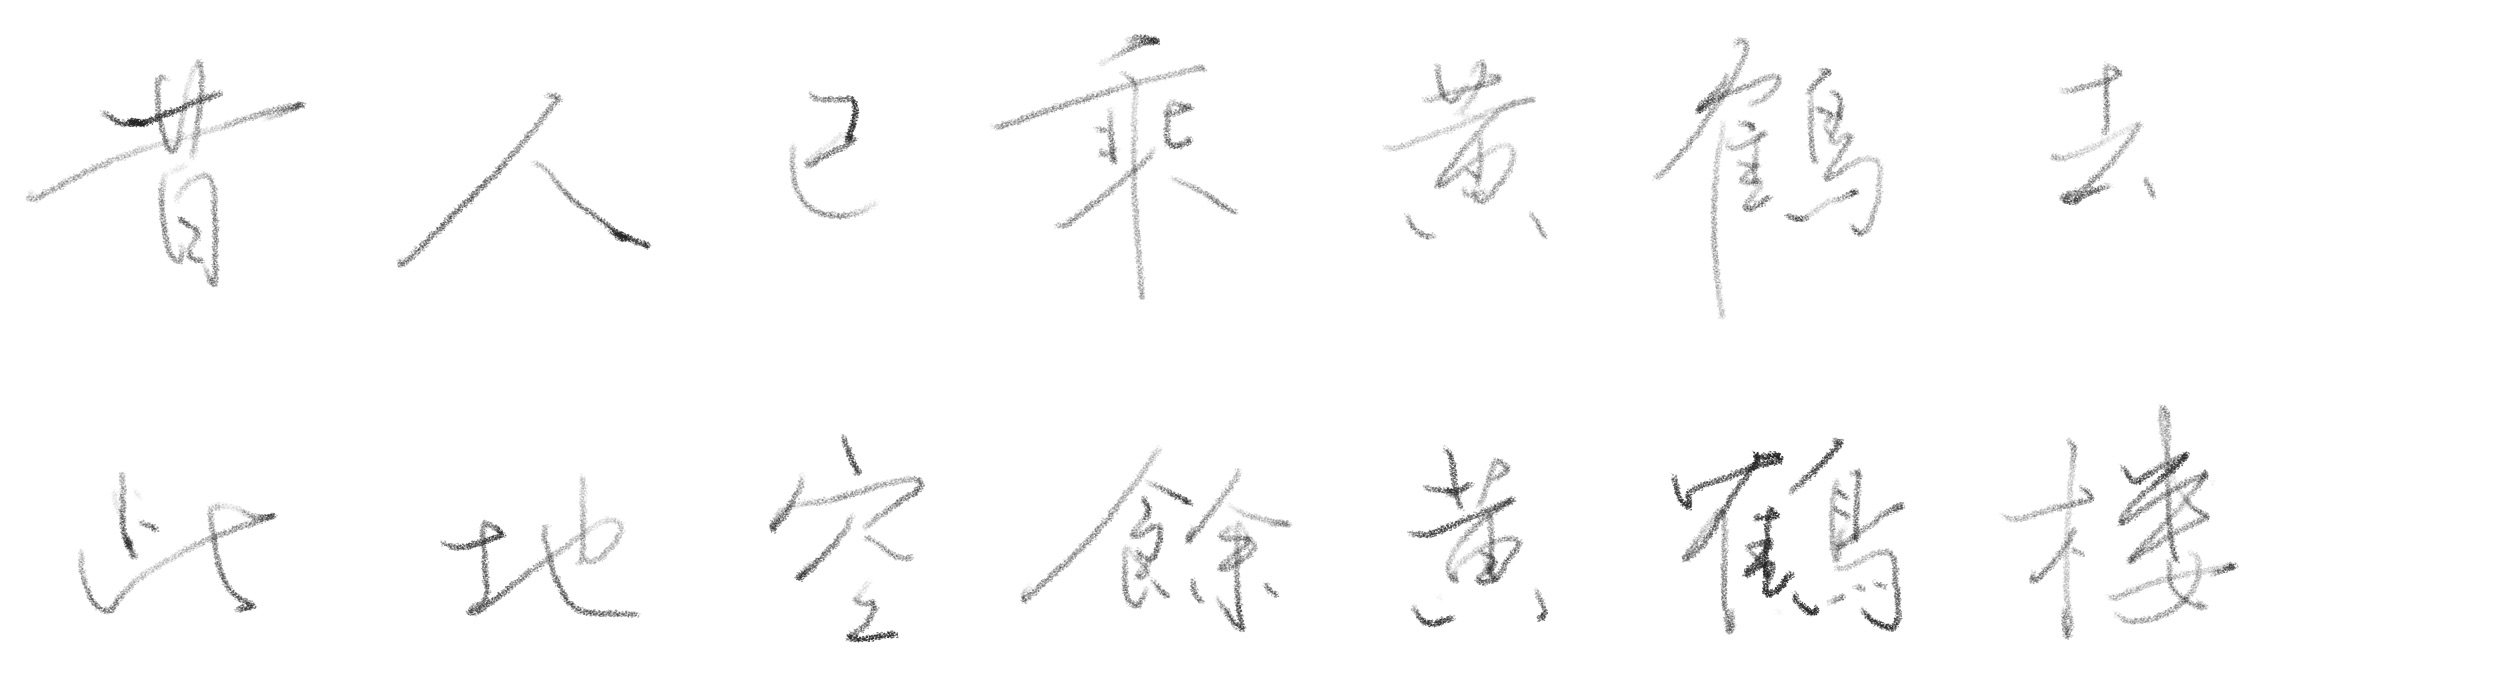 昔人已乘黃鶴去
此地空餘黃鶴樓